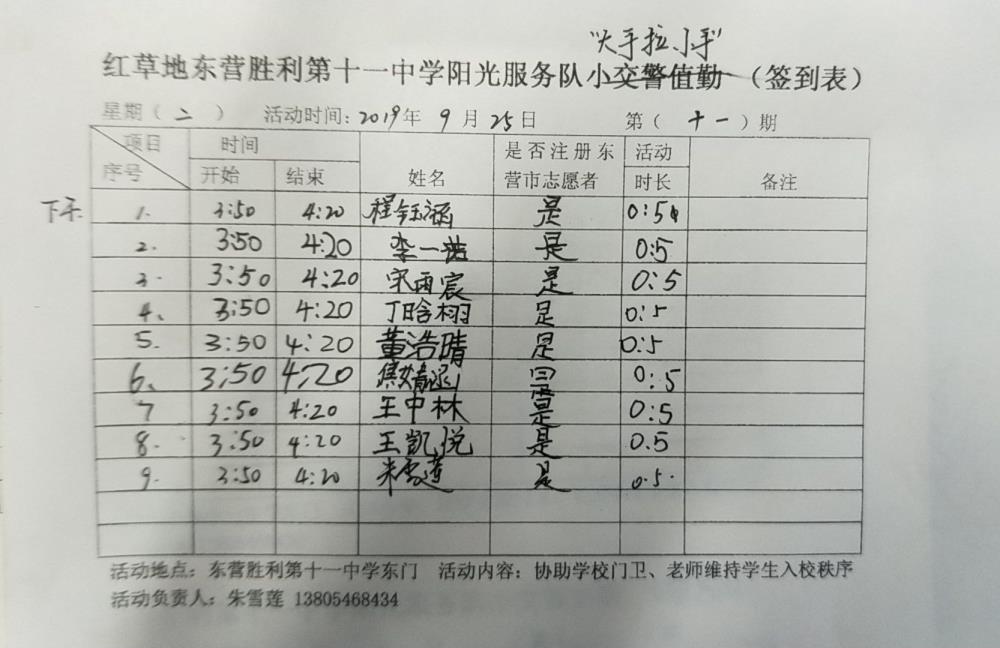 "大手拉小手"
红草地东营胜利第十一中学阳光服务队小交警值勤 （签到表）
星期（二） 活动时间：2019年 9月25日 第（十一）期
项目 时间 姓名 是否注册东营市志愿者 活动时长 备注
序号 开始 结束
下午 1. 3:50 4:20 程钰涵 是 0:5
2. 3:50 4:20 李一浩 是 0:5
3. 3:50 4:20 宋雨宸 是 0:5
4. 3:50 4:20 丁晗栩 是 0:5
5. 3:50 4:20 董浩晴 是 0:5
6. 3:50 4:20 焦婧涵 是 0:5
7 3:50 4:20 王中林 是 0:5
8. 3:50 4:20 王凯悦 是 0.5
9. 3:50 4:20 朱雪莲 是 0.5.
活动地点：东营胜利第十一中学东门 活动内容：协助学校门卫、老师维持学生入校秩序
活动负责人：朱雪莲 13805468434